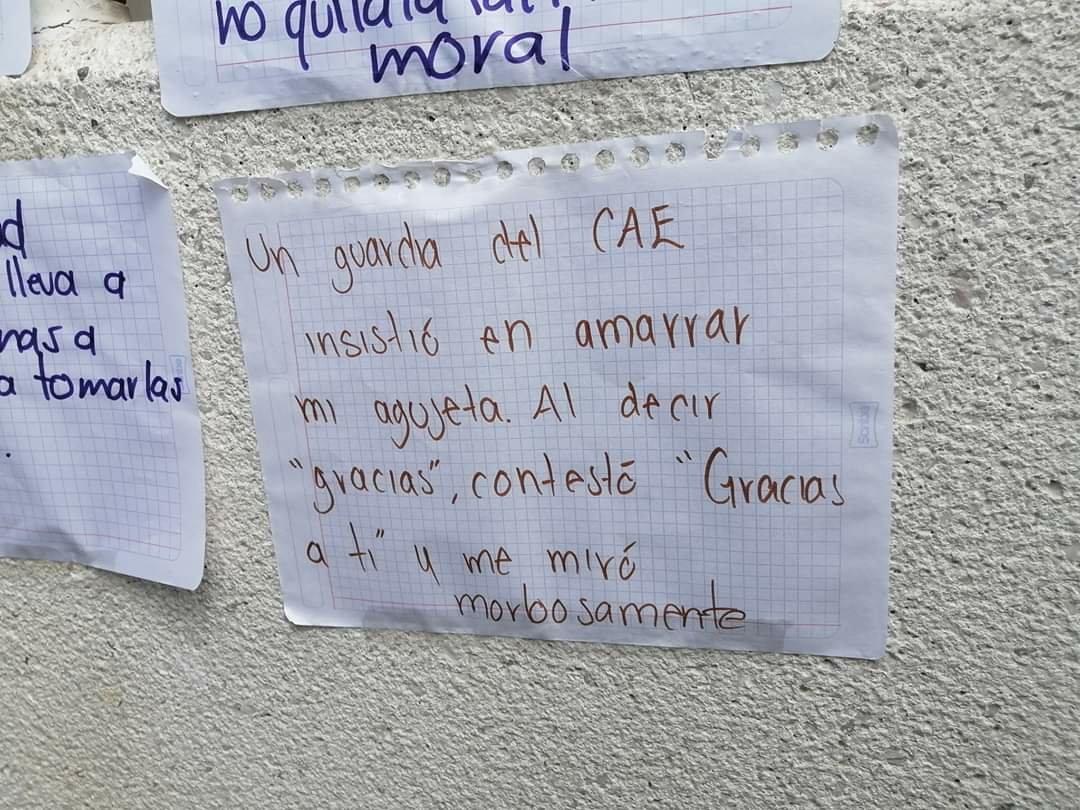 no quita la
moral
d
lleva a
nas a
a tomarlas
.
Un guardia del CAE
insistió en amarrar
mi agujeta. Al decir
"gracias", contestó "Gracias
a ti" y me miró
morbosamente